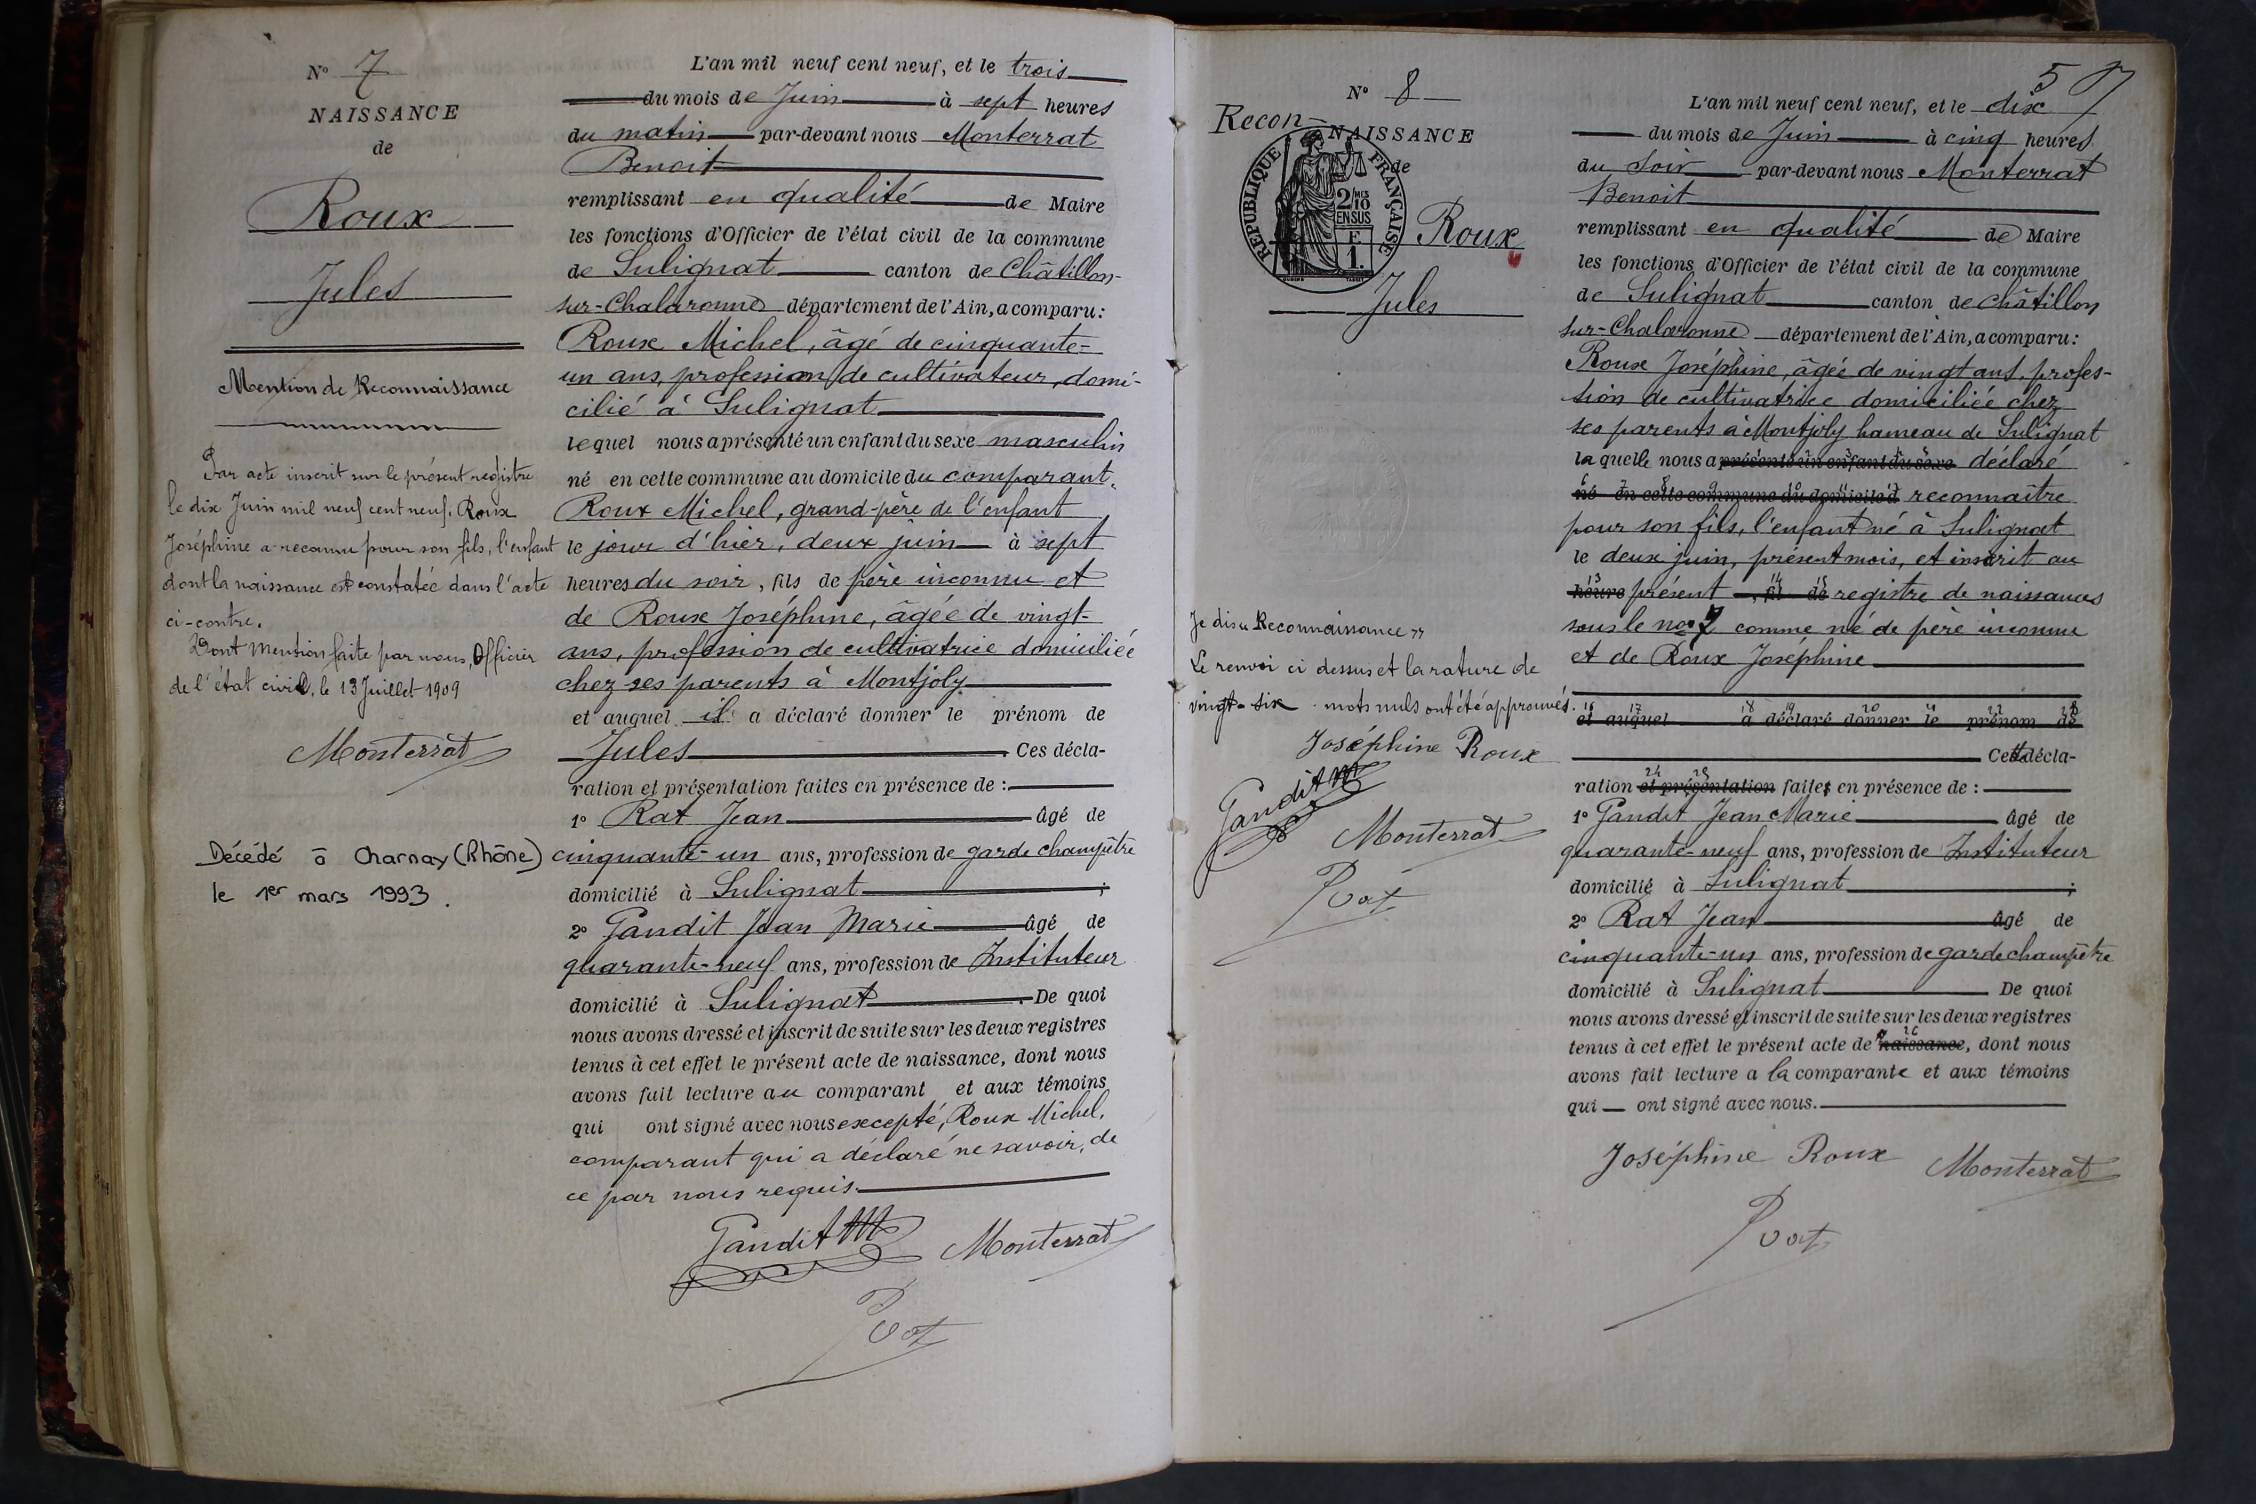 N° 7
NAISSANCE
de
Roux
Jules
Mention de Reconnaissance
Par acte inscrit sur le présent registre
le dix Juin mil neuf cent neuf, Roux
Joséphine a reconnu pour son fils, l'enfant
dont la naissance est constatée dans l'acte
ci-contre.
Dont mention faite par nous, Officier
de l'état civil, le 13 Juillet 1909
Monterrat
Décédé à Charnay (Rhône)
le 1er mars 1993.
L'an mil neuf cent neuf, et le trois
du mois de Juin à sept heures
du matin par-devant nous Monterrat
Benoit
remplissant en qualité de Maire
les fonctions d'Officier de l'état civil de la commune
de Sulignat canton de Châtillon-
sur-Chalaronne département de l'Ain, a comparu:
Roux Michel, âgé de cinquante-
un ans, profession de cultivateur, domi-
cilié à Sulignat
lequel nous a présenté un enfant du sexe masculin
né en cette commune au domicile du comparant,
Roux Michel, grand-père de l'enfant
le jour d'hier, deux juin à sept
heures du soir, fils de père inconnu et
de Roux Joséphine, âgée de vingt-
ans, profession de cultivatrice domiciliée
chez ses parents à Montjoly
et auquel il a déclaré donner le prénom de
Jules. Ces décla-
ration et présentation faites en présence de :
1° Rat Jean âgé de
cinquante-un ans, profession de garde champêtre
domicilié à Sulignat ;
2° Gandit Jean Marie âgé de
quarante-neuf ans, profession de Instituteur
domicilié à Sulignat. De quoi
nous avons dressé et inscrit de suite sur les deux registres
tenus à cet effet le présent acte de naissance, dont nous
avons fait lecture au comparant et aux témoins
qui ont signé avec nous excepté, Roux Michel,
comparant qui a déclaré ne savoir, de
ce par nous requis.
Gandit JM Monterrat
Rat
57
N° 8
Recon-NAISSANCE
de
RÉPUBLIQUE FRANÇAISE
2/10 MES
EN SUS
F
1.
Roux
Jules
Je dis « Reconnaissance »
Le renvoi ci dessus et la rature de
vingt-six mots nuls ont été approuvés.
Joséphine Roux
Gandit JM
Monterrat
Rat
L'an mil neuf cent neuf, et le dix
du mois de Juin à cinq heures
du soir par-devant nous Monterrat
Benoit
remplissant en qualité de Maire
les fonctions d'Officier de l'état civil de la commune
de Sulignat canton de Châtillon
sur-Chalaronne département de l'Ain, a comparu:
Roux Joséphine, âgée de vingt ans, profes-
sion de cultivatrice domiciliée chez
ses parents à Montjoly hameau de Sulignat
laquelle nous a présenté un enfant du sexe déclaré
né en cette commune au domicile d reconnaître
pour son fils, l'enfant né à Sulignat
le deux juin, présent mois, et inscrit au
heure présent , fil de registre de naissances
sous le no 7 comme né de père inconnu
et de Roux Joséphine
16 17 18 19 20 21 22 23
et auquel a déclaré donner le prénom de
Cette décla-
24 25
ration et présentation faites en présence de :
1° Gandit Jean Marie âgé de
quarante-neuf ans, profession de Instituteur
domicilié à Sulignat ;
2° Rat Jean âgé de
cinquante-un ans, profession de garde champêtre
domicilié à Sulignat De quoi
nous avons dressé et inscrit de suite sur les deux registres
26
tenus à cet effet le présent acte de naissance, dont nous
avons fait lecture a la comparante et aux témoins
qui ont signé avec nous.
Joséphine Roux Monterrat
Rat